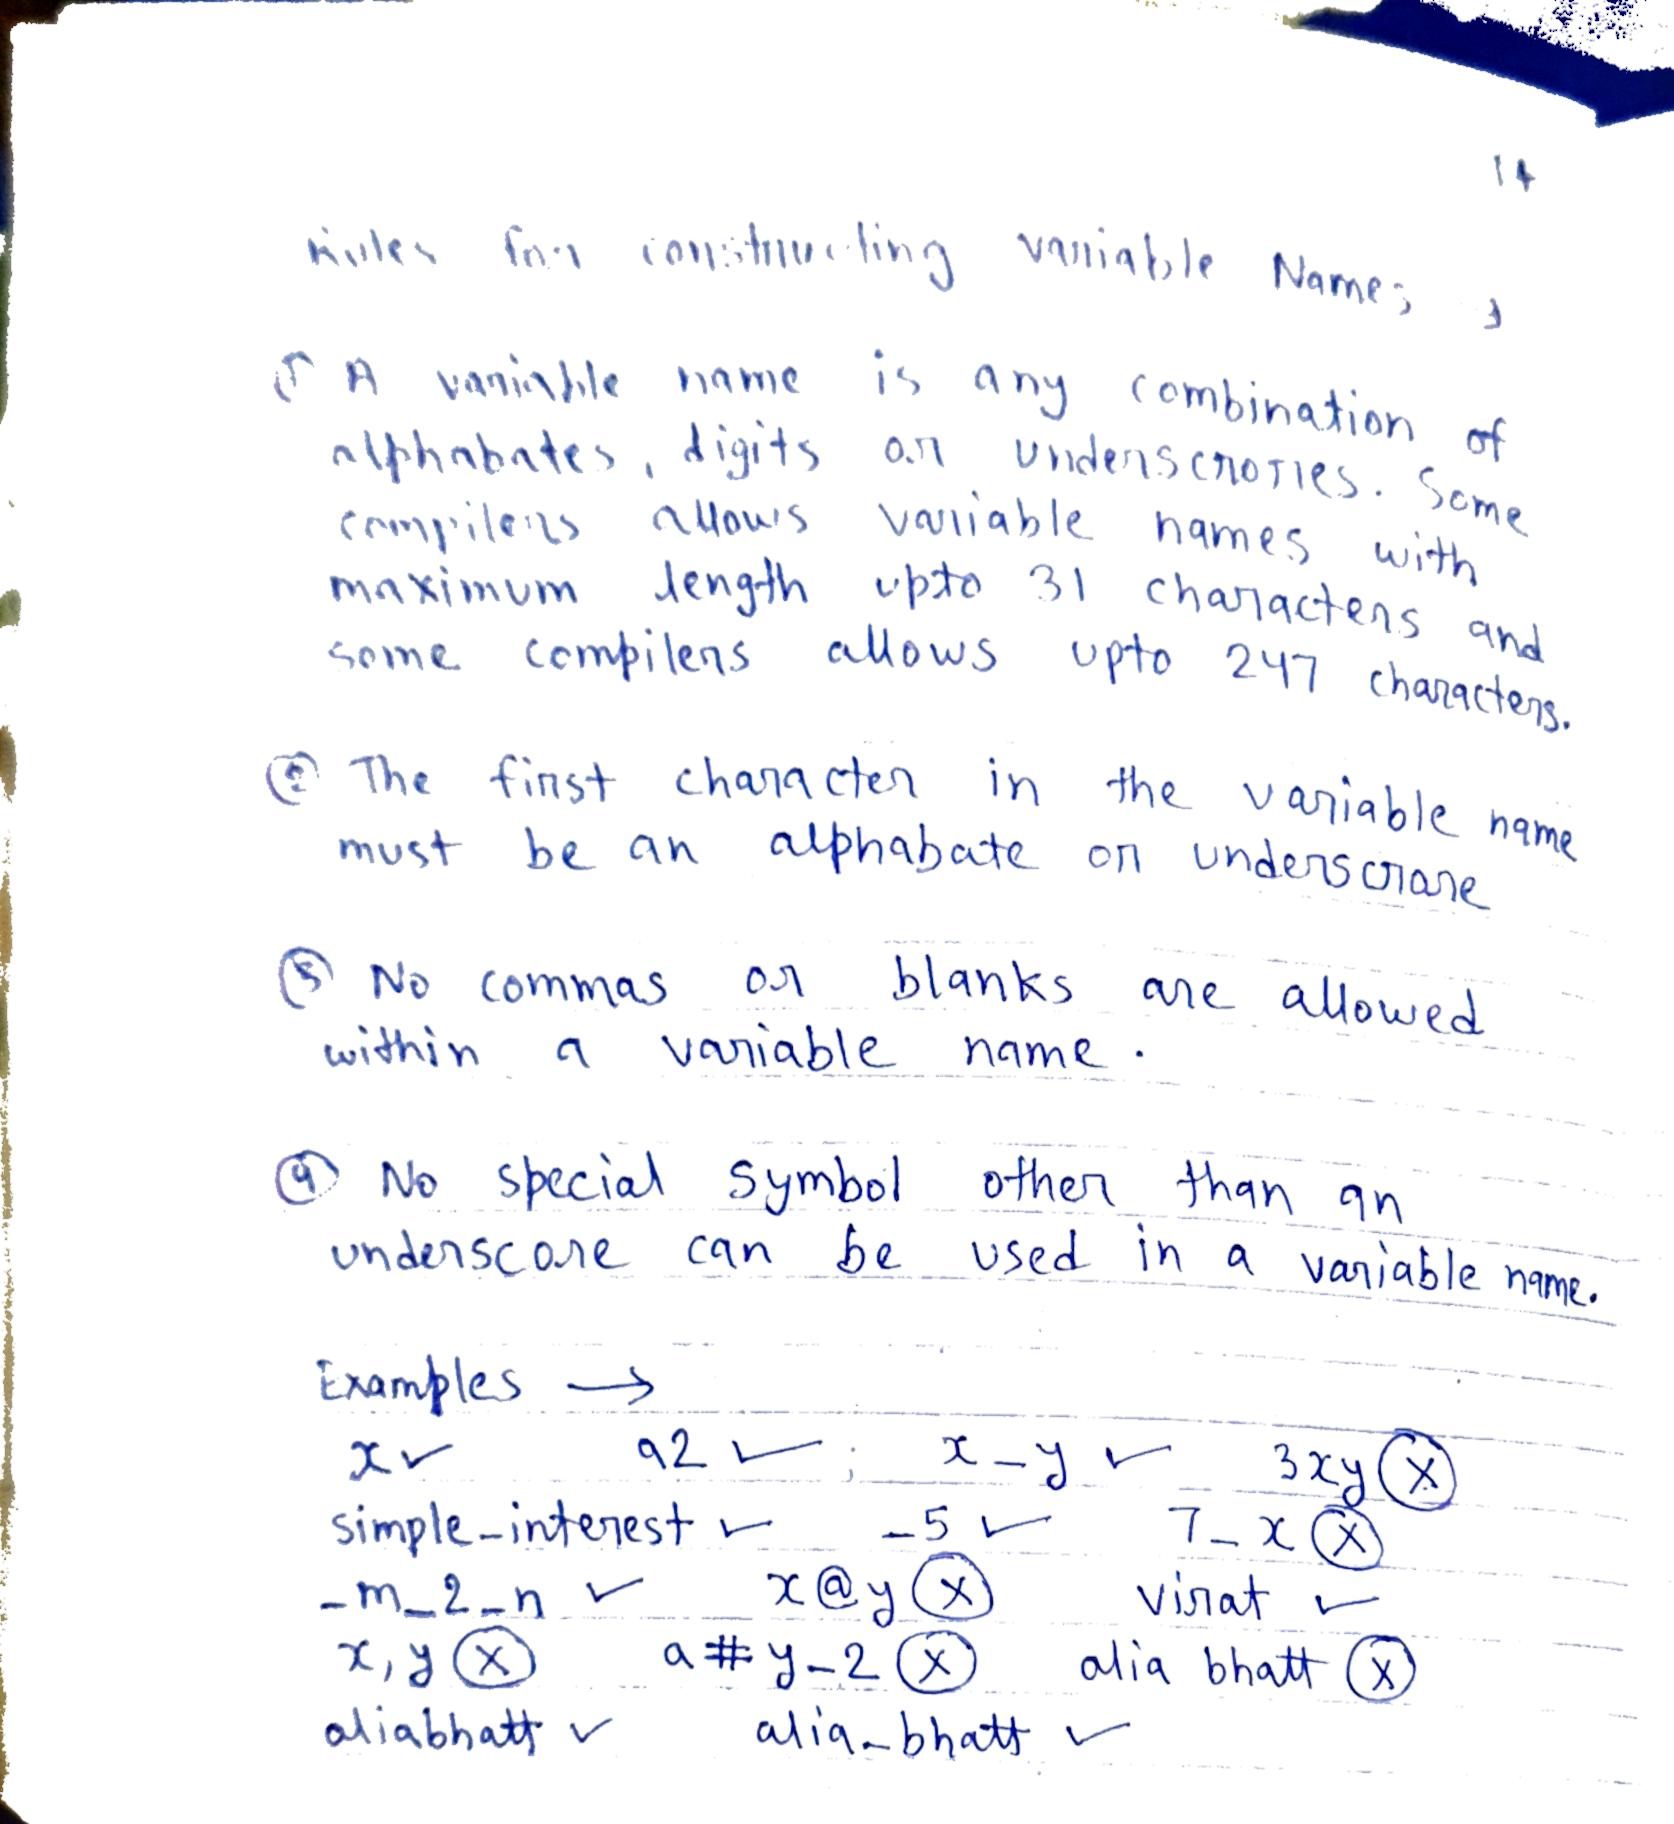 14
Rules for constructing variable Names
① A variable name is any combination of
alphabates, digits or underscrores. Some
compilers allows variable names with
maximum length upto 31 characters and
some compilers allows upto 247 characters.
② The first character in the variable name
must be an alphabate or underscrore
③ No commas or blanks are allowed
within a variable name.
④ No special symbol other than an
underscore can be used in a variable name.
Examples →
x ✓ a2 ✓ ; x_y ✓ 3xy ⓧ
simple_interest ✓ _5 ✓ 7_x ⓧ
_m_2_n ✓ x@y ⓧ virat ✓
x,y ⓧ a#y_2 ⓧ alia bhatt ⓧ
aliabhatt ✓ alia_bhatt ✓